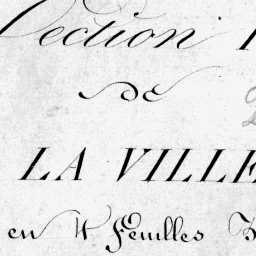 Section
de
LA VILLE
en 4 Feuilles